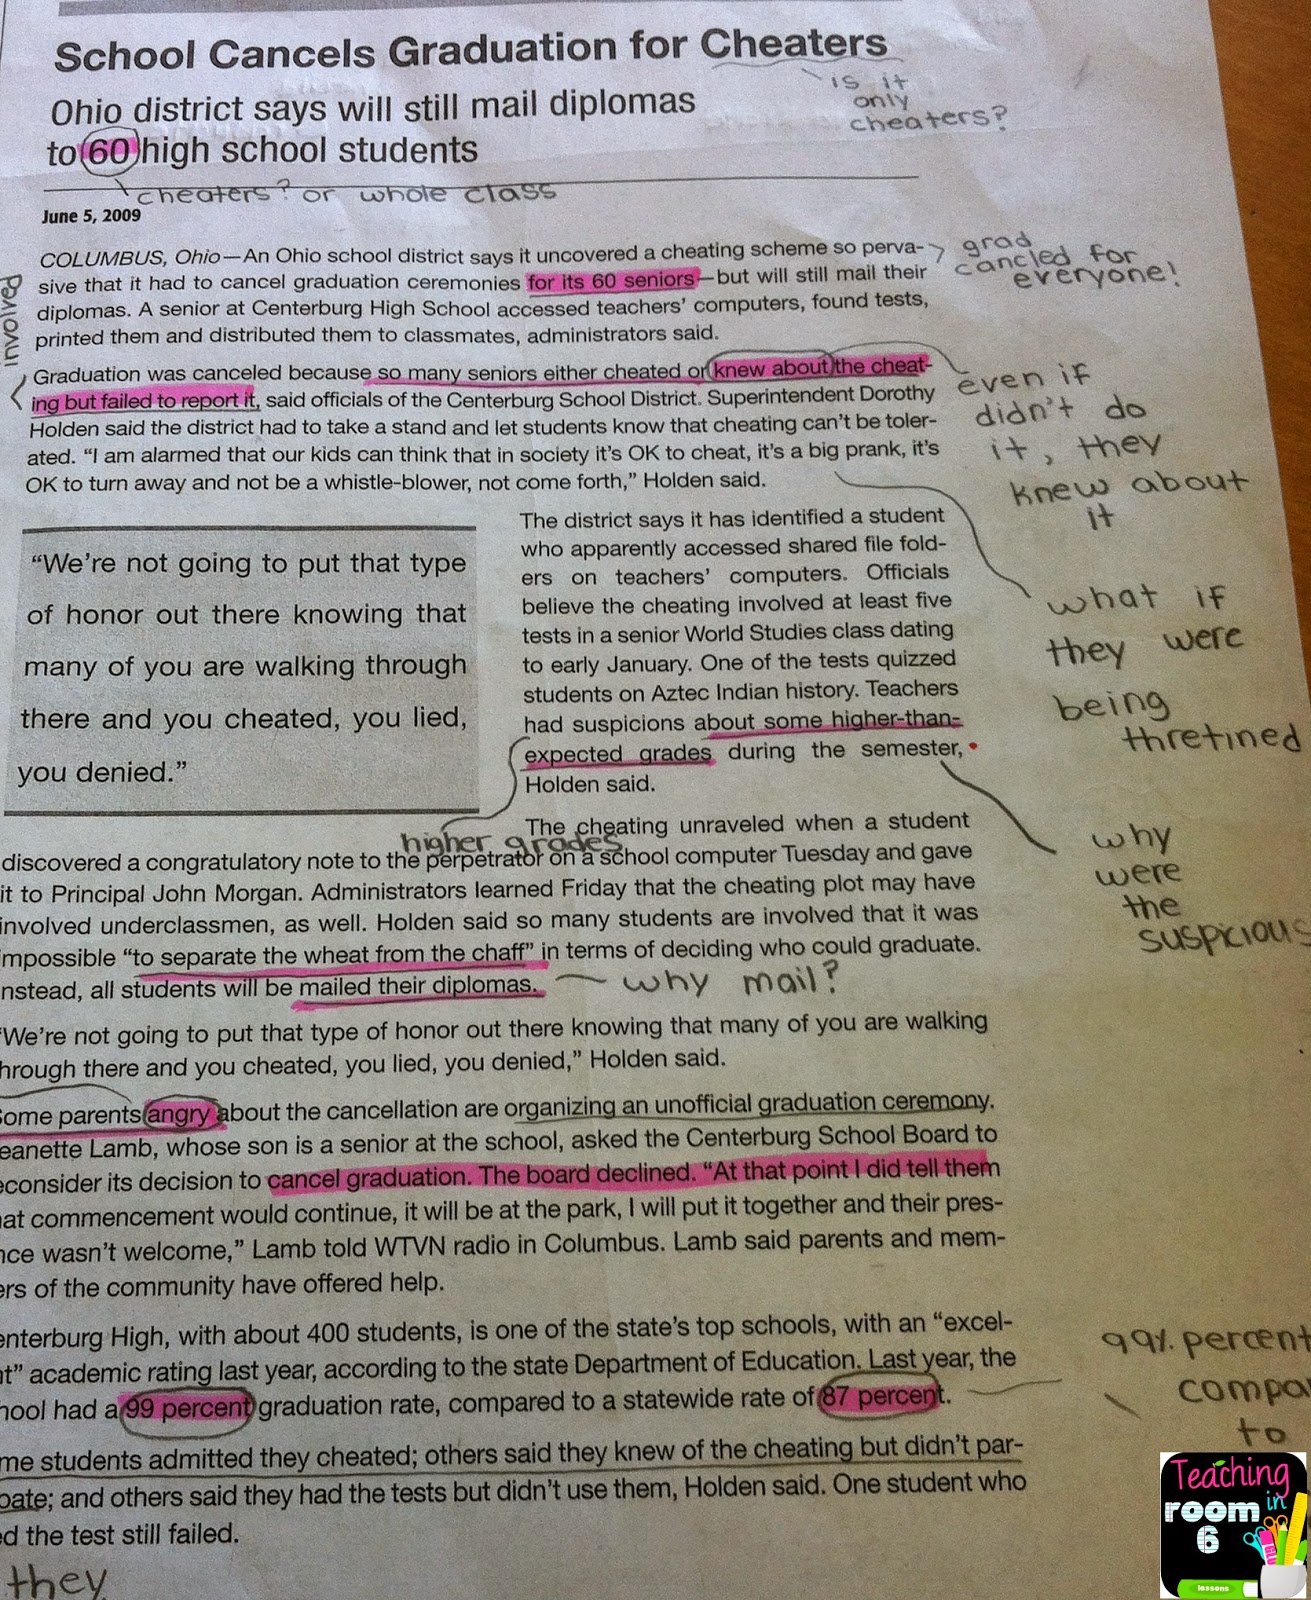 School Cancels Graduation for Cheaters
is it
only
cheaters?
Ohio district says will still mail diplomas
to 60 high school students
cheaters? or whole class
June 5, 2009
COLUMBUS, Ohio—An Ohio school district says it uncovered a cheating scheme so perva-
sive that it had to cancel graduation ceremonies for its 60 seniors—but will still mail their
diplomas. A senior at Centerburg High School accessed teachers' computers, found tests,
printed them and distributed them to classmates, administrators said.
grad
cancled for
everyone!
involved
Graduation was canceled because so many seniors either cheated or knew about the cheat-
ing but failed to report it, said officials of the Centerburg School District. Superintendent Dorothy
Holden said the district had to take a stand and let students know that cheating can't be toler-
ated. “I am alarmed that our kids can think that in society it's OK to cheat, it's a big prank, it's
OK to turn away and not be a whistle-blower, not come forth,” Holden said.
even if
didn't do
it, they
knew about
it
“We're not going to put that type
of honor out there knowing that
many of you are walking through
there and you cheated, you lied,
you denied.”
The district says it has identified a student
who apparently accessed shared file fold-
ers on teachers' computers. Officials
believe the cheating involved at least five
tests in a senior World Studies class dating
to early January. One of the tests quizzed
students on Aztec Indian history. Teachers
had suspicions about some higher-than-
expected grades during the semester,
Holden said.
what if
they were
being
thretined
why
were
the
suspicious
higher grades
The cheating unraveled when a student
discovered a congratulatory note to the perpetrator on a school computer Tuesday and gave
it to Principal John Morgan. Administrators learned Friday that the cheating plot may have
involved underclassmen, as well. Holden said so many students are involved that it was
mpossible “to separate the wheat from the chaff” in terms of deciding who could graduate.
nstead, all students will be mailed their diplomas.
why mail?
“We're not going to put that type of honor out there knowing that many of you are walking
hrough there and you cheated, you lied, you denied,” Holden said.
Some parents angry about the cancellation are organizing an unofficial graduation ceremony.
eanette Lamb, whose son is a senior at the school, asked the Centerburg School Board to
econsider its decision to cancel graduation. The board declined. “At that point I did tell them
hat commencement would continue, it will be at the park, I will put it together and their pres-
nce wasn't welcome,” Lamb told WTVN radio in Columbus. Lamb said parents and mem-
ers of the community have offered help.
enterburg High, with about 400 students, is one of the state's top schools, with an “excel-
nt” academic rating last year, according to the state Department of Education. Last year, the
hool had a 99 percent graduation rate, compared to a statewide rate of 87 percent.
99% percent
compa
to
me students admitted they cheated; others said they knew of the cheating but didn't par-
pate; and others said they had the tests but didn't use them, Holden said. One student who
ed the test still failed.
they
Teaching
in
room
6
lessons